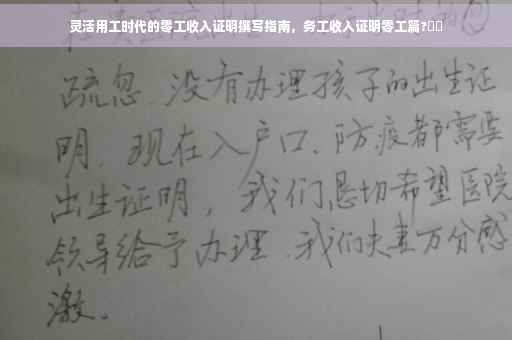 灵活用工时代的零工收入证明撰写指南，务工收入证明零工篇?
疏忽、没有办理孩子的出生证
明、现在入户口、防疫都需要
出生证明，我们恳切希望医院
领导给予办理、我们夫妻万分感
激。